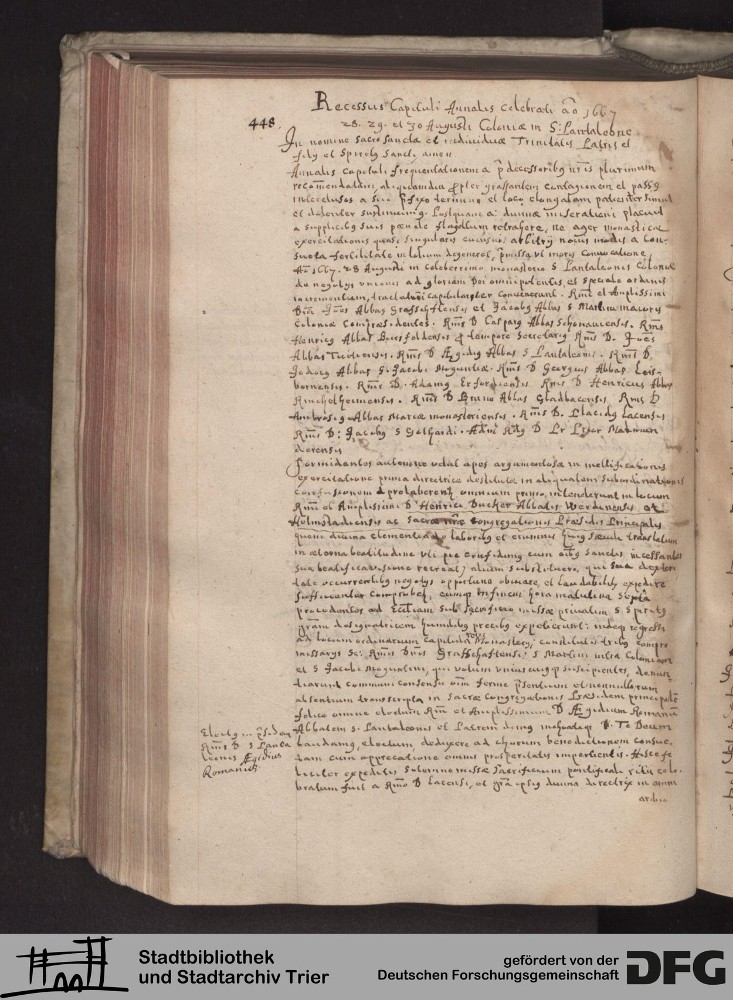 Recessus Capituli Annalis celebrati aõ 1667
448
28. 29. et 30 Augusti Coloniæ in S. Pantaleone
In nomine sacrosanctæ et individuæ Trinitatis Patris et
filij et Spiritꝰ Sancti amen
Annalis capituli frequentationem a p̃decessoribꝰ nr̃is plurimum
recom̃endatam, aliquamdiu propter grassantem contagionem et
a suo p̃fixo termino et loco elongatam patienter simul
et dolenter sustinuimꝰ. Postquam aũ divinæ miserationi placuit
a supplicibꝰ suis pœnale flagellum retrahere, ne ager monasticæ
exercitationis quasi singularis arbitrij novis modis a con-
sueta fertilitate in lolium degeneret, p̃missa vt moris convocatione
Aõ 1667. 28 Augusti in celeberrimo monasterio S Pantaleonis Coloniæ
de negotijs vnionis ad gloriam Dei omnipotentis, et speciale ordinis
incrementum, tractaturi capitulariter convenerunt. Rm̃i et Amplissimi
Dñi Joẽs Abbas Grafschaftensis et Jacobꝰ Abbas S Martini maioris
Coloniæ Compræsidentes. Rm̃ꝰ D Casparꝰ Abbas Schonaucensis. Rm̃ꝰ
Henricꝰ Abbas pro tempore Secretariꝰ Rm̃ꝰ D. Joẽs
Abbas Tuitiensis. Rm̃ꝰ D Ægidiꝰ Abbas S Pantaleonis. Rm̃ꝰ D.
Jodocꝰ Abbas S. Jacobi Moguntiæ. Rm̃ꝰ D Georgius Abbas Leis-
bornensis. Rm̃ꝰ D. Adamꝰ Erfordiensis Rm̃ꝰ D Henricus Abbas
Rm̃ꝰ D Bruno Abbas Gladbacensis. Rm̃ꝰ D
Ambrosiꝰ Abbas Mariæ monasteriensis. Rm̃ꝰ D. Placidꝰ Lacensis
Rm̃ꝰ D: Jacobꝰ S Godhardi. Adm̃ Rñdꝰ D Pr Prior
Formidantes autem ne velut apes argumentosæ in mellificationis
exercitatione primà directrice destitutæ in aliqualem subordinationis
confusionem prolaberentꝰ omnium primò, intenderunt in locum
Rm̃i et Amplissimi D Henrici Ducker Abbatis Werdinensis et
Helmstadiensis ac Sacræ nr̃æ Congregationis Præsidis Principalis
quem divina clementia laboribꝰ et ærumnis huiꝰ sæculi translatum
in æterna beatitudine vti pie confidimꝰ cum oĩbꝰ sanctis incessanter
sua beatifica visione recreat, alium substituere, qui sua dexteri
tate occurrentibꝰ negotijs opportune obviare, et laudabiliter expedire
sufficienter comprobetꝰ, eumqꝫ in finem hora matutina septa
procedentes ad Ecclĩam sub sacrificio missæ privatim S Spiritꝰ
gr̃am designatricem humilibꝰ precibꝰ expetierunt: indeqꝫ regressi
ad locum ordinarium capituli Monasterij, constitutis tribꝰ commis
missarijs Sc: Rm̃is Dñis Grafschaftensi, S Martini intra Coloniam
et S Jacobi Moguntini, qui votum vniuscuiusqꝫ suscipientes, denun-
tiarunt communi consensu oĩm ferme p̃sentium et nonnullorum
absentium transscripta in sacræ congregationis Præsidem principalẽ
felici omine electum Rm̃ et Amplissimum D Ægidium Romanũ
Abbatem S. Pantaleonis et Patrem Te Deum
laudamꝰ, electum, deduxere ad chorum benedictionem consue-
tam cum apprecatione omnis prosperitatis impertientes. Hisce fe-
liciter expeditis solemne missæ sacrificium pontificali ritu cele-
bratum fuit a Rm̃o D Lacensi, et gr̃a ipsiꝰ divina directrix in
Electꝰ in p̃sidem
Rm̃ꝰ D S Panta
leonis Ægidius
Romanus.
Stadtbibliothek
und Stadtarchiv Trier
gefördert von der
Deutschen Forschungsgemeinschaft
DFG